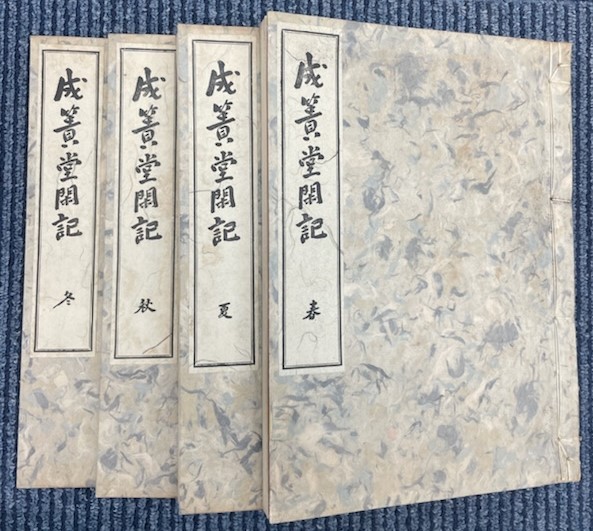 成簣堂閑記
春
成簣堂閑記
夏
成簣堂閑記
秋
成簣堂閑記
冬